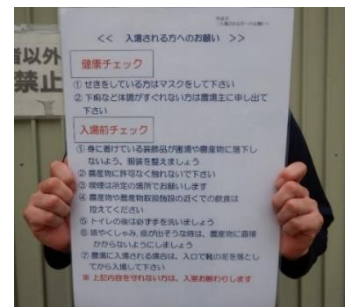 者以外
禁止
<< 入場される方へのお願い >>
健康チェック
① せきをしている方はマスクをして下さい
② 下痢など体調がすぐれない方は農場主に申し出て
下さい
入場前チェック
① 身に着けている装飾品が圃場や農産物に落下し
ないよう、服装を整えましょう
② 農産物に許可なく触れないで下さい
③ 喫煙は所定の場所でお願いします
④ 農産物や農産物取扱施設の近くでの飲食は
控えてください
⑤ トイレの後は必ず手を洗いましょう
⑥ 咳やくしゃみ、痰が出そうな時は、農産物に直接
かからないようにしましょう
⑦ 農場に入場される場合は、入口で靴の泥を落とし
てから入場して下さい
※ 上記内容を守れない方は、入場お断りします